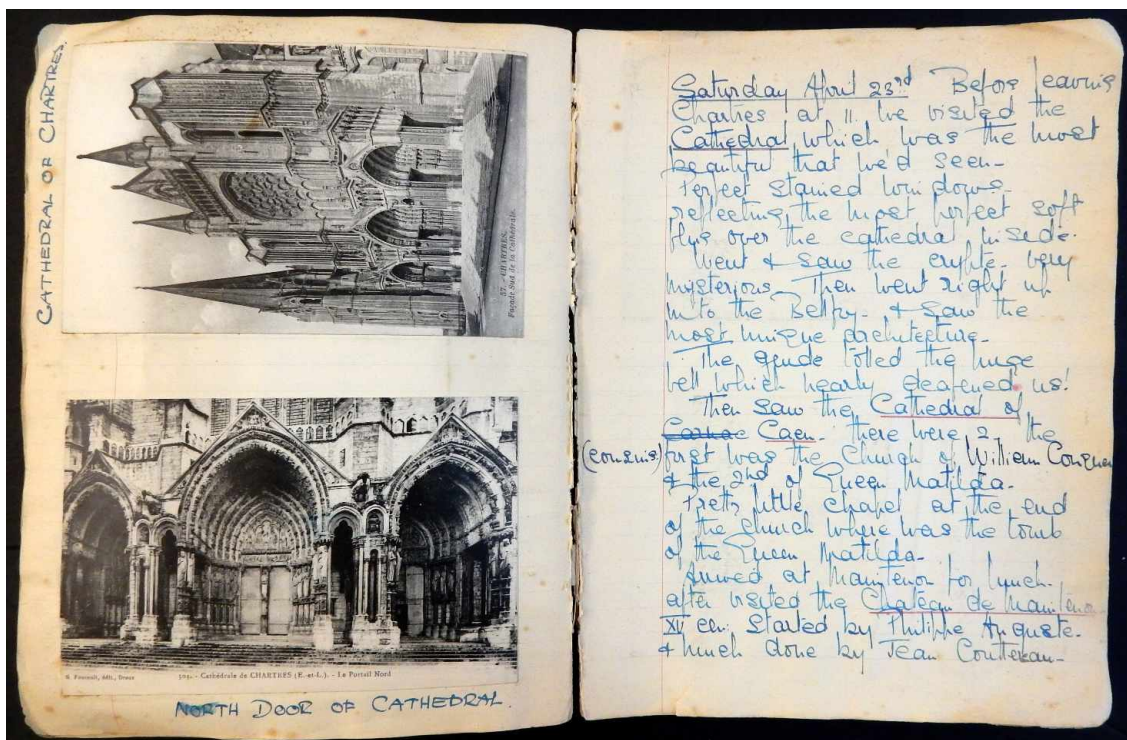 CATHEDRAL OF CHARTRES.
57. - CHARTRES.
Façade Sud de la Cathédrale.
G. Foucault, édit., Dreux
505. - Cathédrale de CHARTRES (E.-et-L.). - Le Portail Nord
NORTH DOOR OF CATHEDRAL.
Saturday April 23rd Before leaving
Chartres at 11. we visited the
Cathedral which was the most
beautiful that we'd seen-
Perfect stained windows-
reflecting the most perfect soft
blue over the cathedral inside.
Went & saw the crypte- very
mysterious- Then went right up
into the Belfry- & saw the
most unique architecture-
The guide tolled the huge
bell which nearly deafened us!
Then saw the Cathedral of
Carnac Caen. there were 2- the
(cousins) first was the Church of William Conquer
& the 2nd of Queen Matilda-
Pretty little chapel at the end
of the church where was the tomb
of the Queen Matilda-
Arrived at Maintenon for lunch-
after visited the Château de Maintenon
XV cen. Started by Philippe Auguste-
& much done by Jean